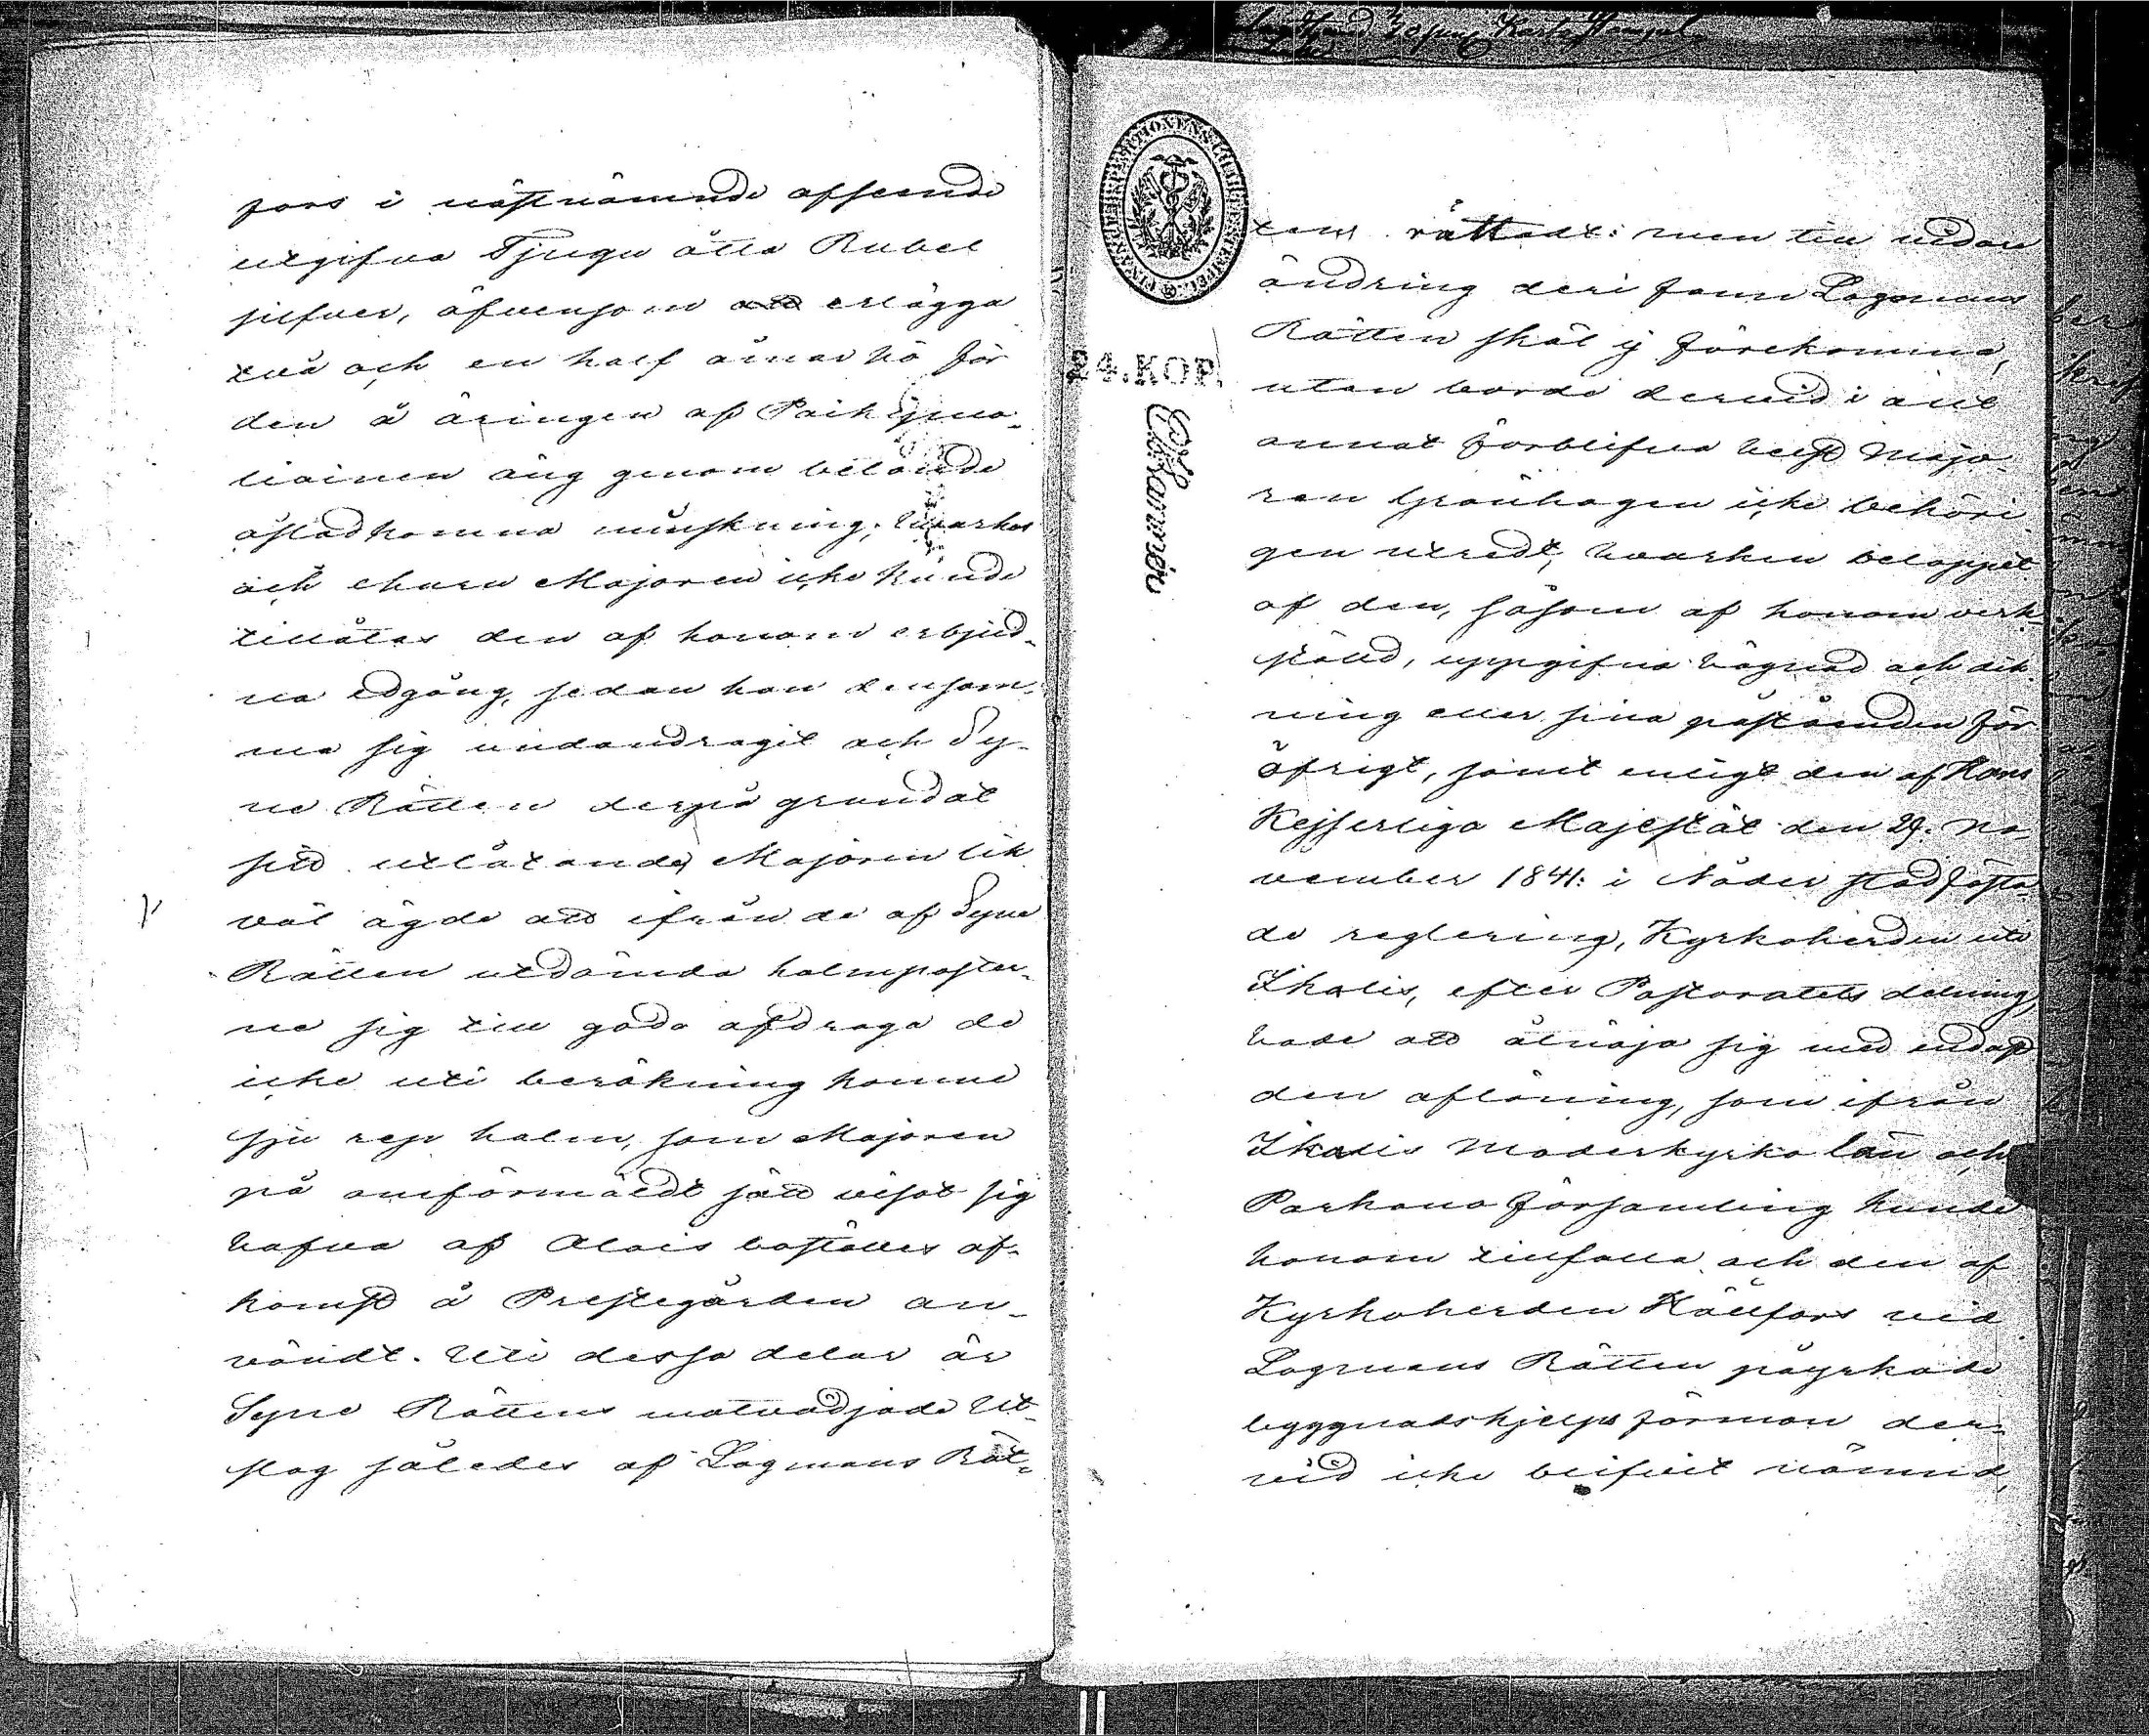 fors i nästnämnde afseende
utgifna Tjugu åtta Rubel
silfver, äfvensom att erlägga
två och en half åmar hö för
den å äringen af Paik
liainen äng genom
åstadkomna minskning; hvarhos
och churu Majoren icke kunde
tillåtas den af honom erbjud-
na edgång, sedan han densam-
ma sig undandragit och Sy-
ne Rätten derpå grundat
sitt utlåtande, Majoren lik
väl ägde att ifrån de af Syne
Rätten utdömda halmposter-
ne sig till godo afdraga de
icke uti beräkning komne
sju rep halm, som Majoren
på omförmäldt sätt visat sig
hafva af Alais boställes af-
komst å Prestegården an-
vändt. Uti dessa delar är
Syne Rättens motvädjade Ut-
slag således af Lagmans Rät-
FINANCEEXPEDITIONENS CHARTESTEMPEL
24. KOP.
tens rättadt: men till vidare
ändring deri fann Lagmans
Rätten skäl ej förekomma,
utan borde dervid i allt
annat förblifva helst Majo-
ren Grönhagen icke behöri-
gen utredt, hvarken beloppet
af den, såsom af honom verk-
ställd, uppgifna hägnad och dik-
ning eller sina påståenden för
öfrigt, samt enligt den af Hans
Kejserliga Majestät den 29. No
vember 1841: i Nåder stadfästa-
de reglering, Kyrkoherden uti
Ikalis, efter Pastoratets delning,
hade att åtnöja sig med endast
den aflöning, som ifrån
Ikalis Moderkyrko län och
Parkano församling kunde
honom tillfalla och den af
Kyrkoherden Hällfors vid
Lagmans Rätten påyrkade
byggnadshjelps förmon der-
vid icke blifvit nämnd,